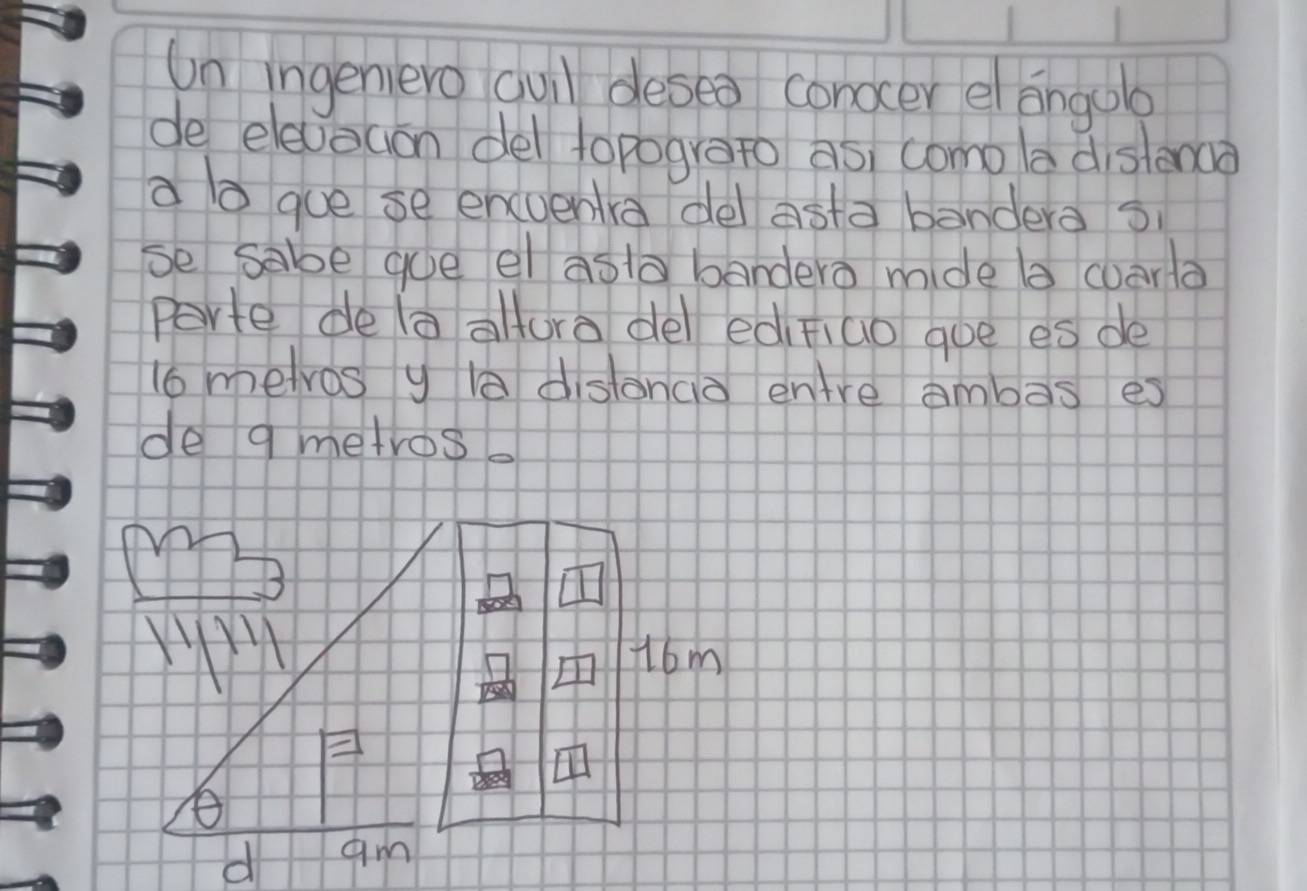 Un ingeniero civil desea conocer el ángulo
de elevación del topografo asi como la distancia
a la que se encuentra del asta bandera si
se sabe que el asta bandera mide la cuarta
parte de la altura del edificio que es de
16 metros y la distancia entre ambas es
de 9 metros.
16m
θ
d 9m